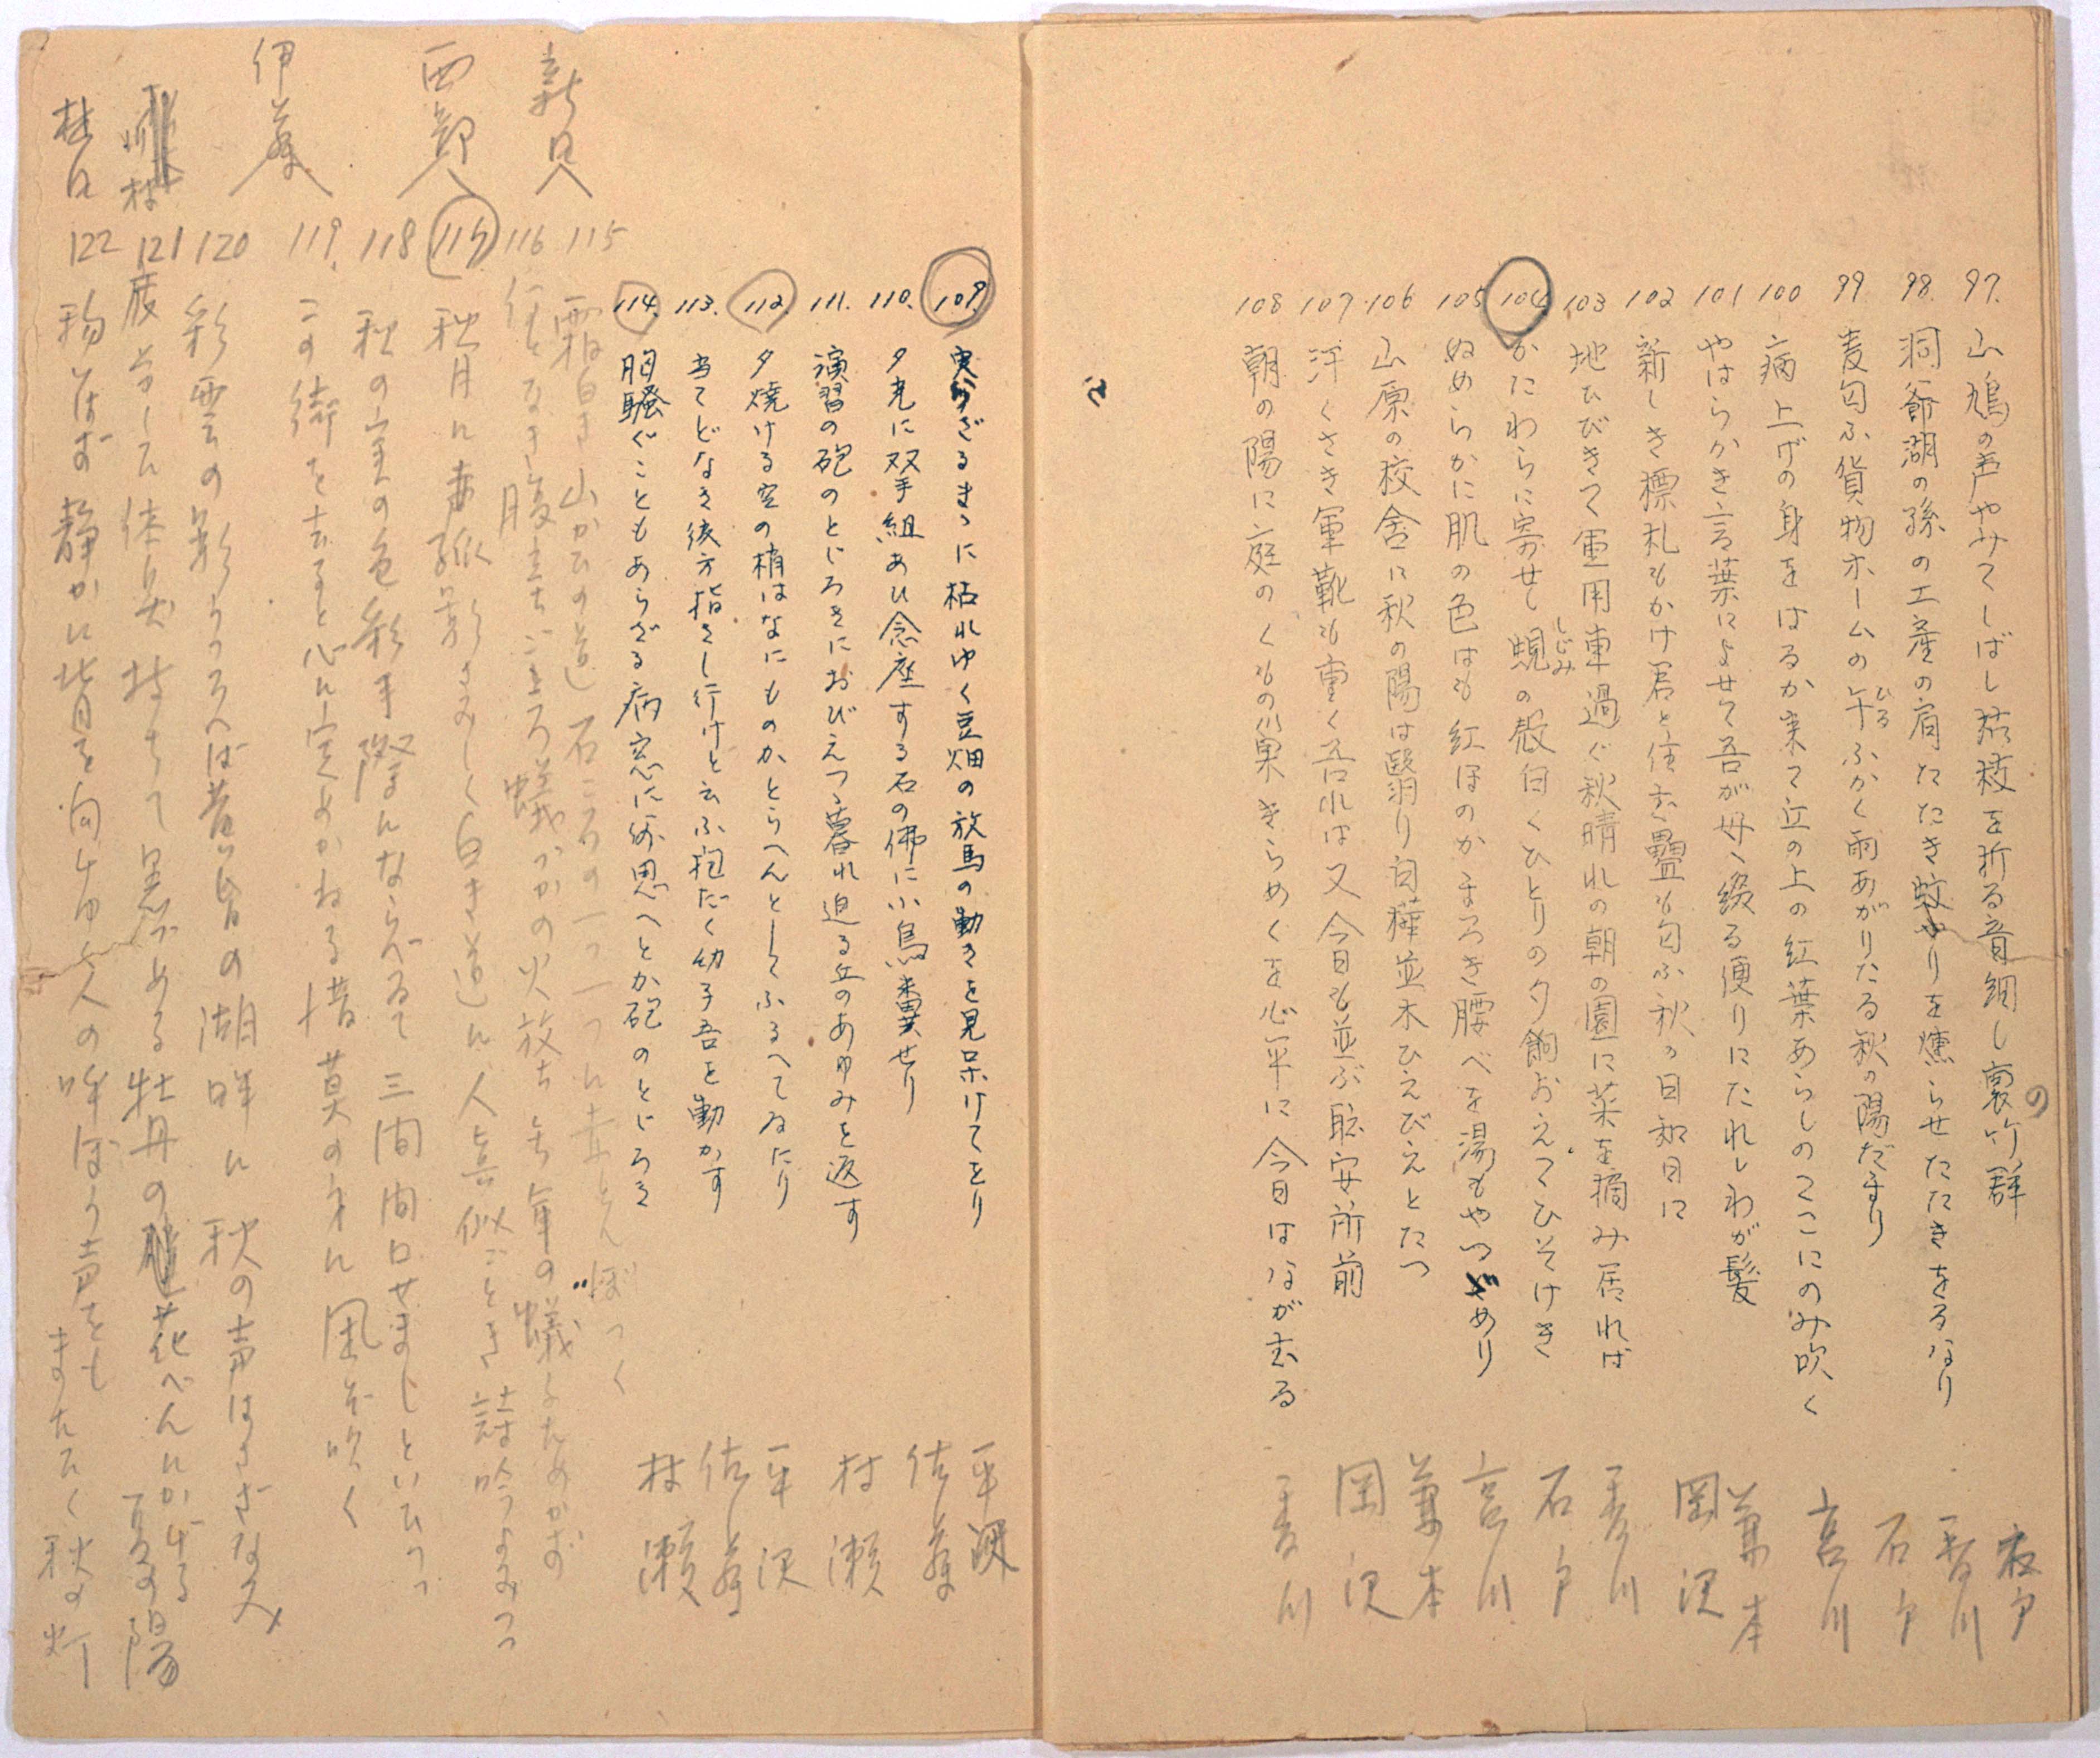 97. 山鳩の声やみてしばし枯枝を折る音細し裏の竹群
98. 洞爺湖の孫の工産の肩たたき蚊やりを燻らせたたきをるなり
99 麦匂ふ貨物ホームの午ふかく雨あがりたる秋の陽だまり
ひる
100 病上げの身をはるか来て丘の上の紅葉あらしのここにのみ吹く
101 やはらかき言葉によせて吾が母へ綴る便りにたれしわが髪
102 新しき標札もかけ君と住む畳も匂ふ秋の日和日に
103 地ひびきて軍用車過ぐ秋晴れの朝の園に菜を摘み居れば
104. かたわらに寄せし蜆の殻白くひとりの夕餉おえてひそけき
しじみ
105 ぬめらかに肌の色はも紅ほのかまろき腰べを湯もやつゞめり
106 山原の校舎に秋の陽は翳り白樺並木ひえびえとたつ
107 汗くさき軍靴も重く吾れは又今日も並ぶ職安所前
108 朝の陽に庭のくもの巣きらめくを心平に今日はながむる
衣戸
香川
石戸
宮川
兼本
岡沢
香川
石戸
宮川
兼本
岡沢
香川
109. 実らざるまゝに枯れゆく豆畑の放馬の動きを見呆けてをり
110. 夕光に双手組あひ念座する石の佛に小鳥糞せり
111. 演習の砲のとどろきにおびえつゝ暮れ迫る丘のあゆみを返す
112. 夕焼ける空の梢はなにものかとらへんとしてふるへてゐたり
113. 当てどなき彼方指さし行けと云ふ抱だく幼子吾を動かす
114. 胸騒ぐこともあらざる病窓に深思へとか砲のとどろき
平沢
佐藤
村瀬
平沢
佐藤
村瀬
新見
115 霜白き山かひの道石ころの一つ一つに赤とんぼつく
116 行となき腹立ちごころ蟻づかの火放ち無辜の蟻みためかず
西部
115 秋月に吾が孤影さみしく白き道に人真似ごとき詩吟よみつつ
118 秋の実の色彩手際にならべるて三間間口せましといひつつ
伊藤
119. この街を去ると心に定めかねる惜莫の身に風が吹く
120 彩雲の影うつろへば昔の湖畔に秋の声はさざなみ
川村
121 廃方して体臭持ちて黒ずめる牡丹の花べんにかげる夏の陽
村田
122 物言はず静かに背を向けゆく人の呼ぼう声をもまたたく秋の灯